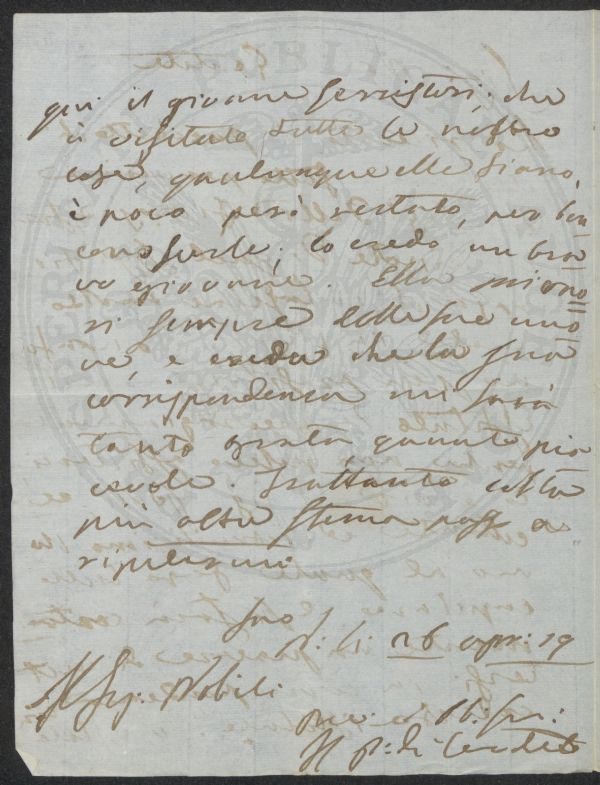 qui il giovane Serristori, che
à visitate tutte le nostre
case, qualunque elle siano,
è poco però restato, per ben
conoscerle; lo credo un bra
vo giovane. Ella mi ono
ri sempre delle sue nuo
ve, e creda che la sua
corrispondenza mi sarà
tanto grata quanto pia
cevole. Frattanto colla
più alta stima passo a
ripetermi
Suo
26 apr: 19
Al Sig. Nobili